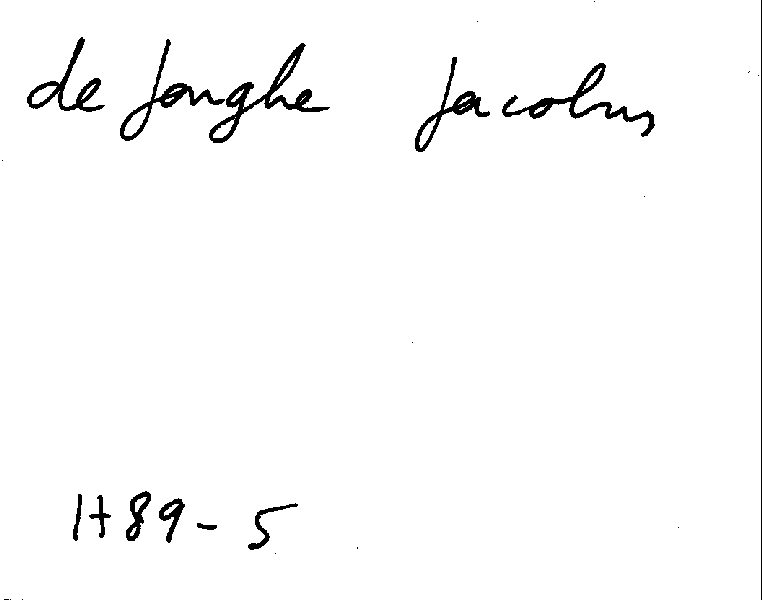 de Jonghe Jacobus
H89-5